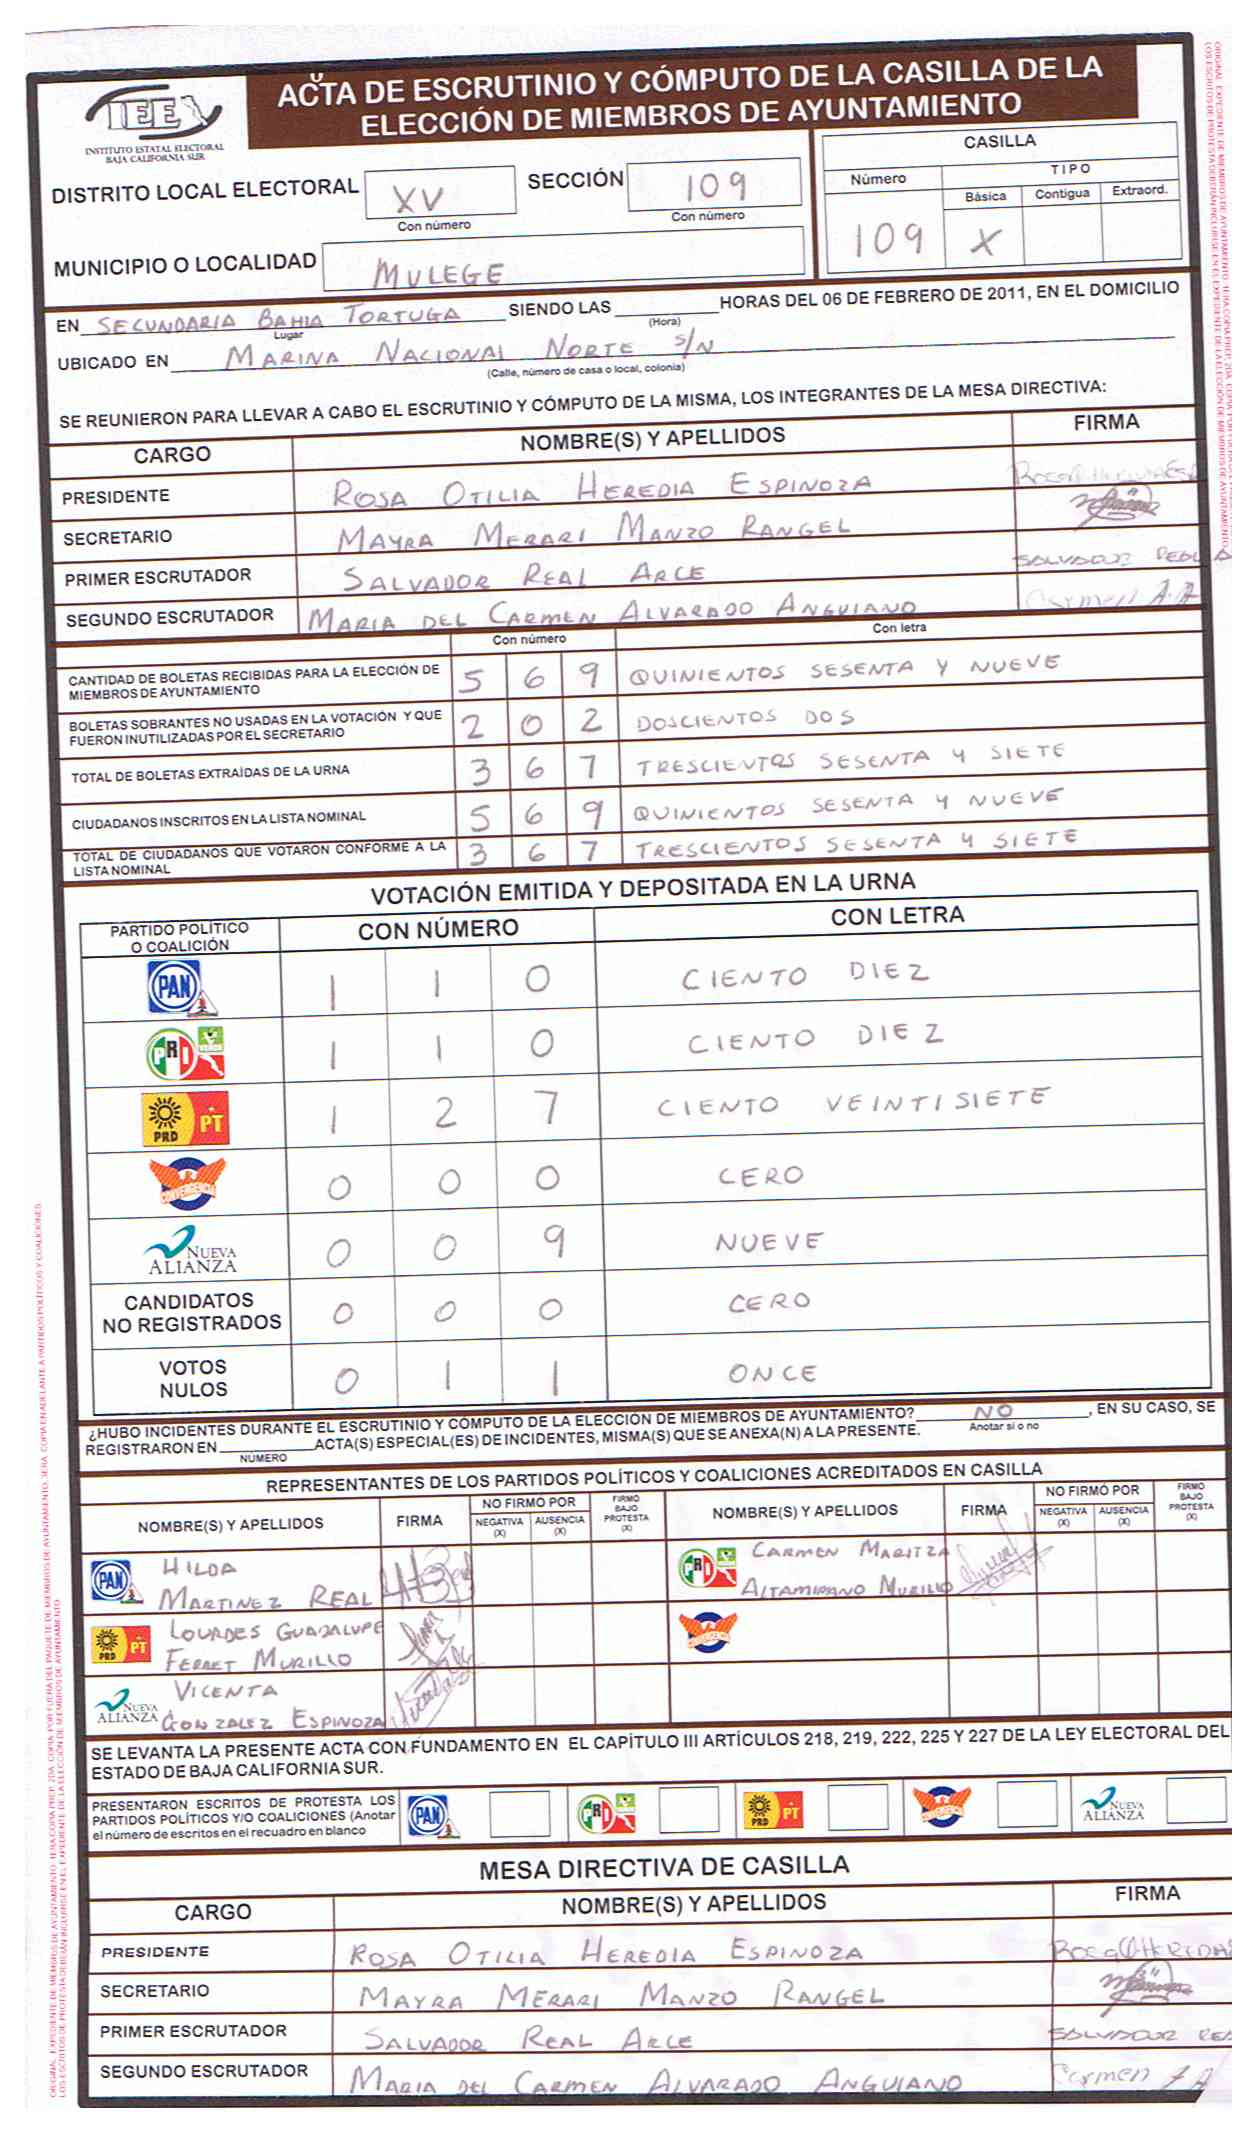 ACTA DE ESCRUTINIO Y CÓMPUTO DE LA CASILLA DE LA
ELECCIÓN DE MIEMBROS DE AYUNTAMIENTO
IEE
INSTITUTO ESTATAL ELECTORAL
BAJA CALIFORNIA SUR
DISTRITO LOCAL ELECTORAL XV SECCIÓN 109
Con número Con número
CASILLA
Número TIPO
Básica Contigua Extraord.
109 X
MUNICIPIO O LOCALIDAD MULEGE
EN SECUNDARIA BAHIA TORTUGA SIENDO LAS HORAS DEL 06 DE FEBRERO DE 2011, EN EL DOMICILIO
Lugar (Hora)
UBICADO EN MARINA NACIONAL NORTE S/N
(Calle, número de casa o local, colonia)
SE REUNIERON PARA LLEVAR A CABO EL ESCRUTINIO Y CÓMPUTO DE LA MISMA, LOS INTEGRANTES DE LA MESA DIRECTIVA:
CARGO NOMBRE(S) Y APELLIDOS FIRMA
PRESIDENTE ROSA OTILIA HEREDIA ESPINOZA
SECRETARIO MAYRA MERARI MANZO RANGEL
PRIMER ESCRUTADOR SALVADOR REAL ARCE SALVADOR REAL A
SEGUNDO ESCRUTADOR MARIA DEL CARMEN ALVARADO ANGUIANO Carmen A.A
Con número Con letra
CANTIDAD DE BOLETAS RECIBIDAS PARA LA ELECCIÓN DE
MIEMBROS DE AYUNTAMIENTO 5 6 9 QUINIENTOS SESENTA Y NUEVE
BOLETAS SOBRANTES NO USADAS EN LA VOTACIÓN Y QUE
FUERON INUTILIZADAS POR EL SECRETARIO 2 0 2 DOSCIENTOS DOS
TOTAL DE BOLETAS EXTRAÍDAS DE LA URNA 3 6 7 TRESCIENTOS SESENTA Y SIETE
CIUDADANOS INSCRITOS EN LA LISTA NOMINAL 5 6 9 QUINIENTOS SESENTA Y NUEVE
TOTAL DE CIUDADANOS QUE VOTARON CONFORME A LA
LISTA NOMINAL 3 6 7 TRESCIENTOS SESENTA Y SIETE
VOTACIÓN EMITIDA Y DEPOSITADA EN LA URNA
PARTIDO POLÍTICO
O COALICIÓN CON NÚMERO CON LETRA
PAN 1 1 0 CIENTO DIEZ
PRI 1 1 0 CIENTO DIEZ
PRD PT 1 2 7 CIENTO VEINTISIETE
CONVERGENCIA 0 0 0 CERO
NUEVA ALIANZA 0 0 9 NUEVE
CANDIDATOS
NO REGISTRADOS 0 0 0 CERO
VOTOS
NULOS 0 1 1 ONCE
¿HUBO INCIDENTES DURANTE EL ESCRUTINIO Y CÓMPUTO DE LA ELECCIÓN DE MIEMBROS DE AYUNTAMIENTO? NO , EN SU CASO, SE
Anotar si o no
REGISTRARON EN ACTA(S) ESPECIAL(ES) DE INCIDENTES, MISMA(S) QUE SE ANEXA(N) A LA PRESENTE.
NUMERO
REPRESENTANTES DE LOS PARTIDOS POLÍTICOS Y COALICIONES ACREDITADOS EN CASILLA
NOMBRE(S) Y APELLIDOS FIRMA NO FIRMÓ POR NEGATIVA (X) AUSENCIA (X) FIRMÓ BAJO PROTESTA (X) NOMBRE(S) Y APELLIDOS FIRMA NO FIRMÓ POR NEGATIVA (X) AUSENCIA (X) FIRMÓ BAJO PROTESTA (X)
PAN HILDA
MARTINEZ REAL
PRI CARMEN MARITZA
ALTAMIRANO MURILLO
PRD PT LOURDES GUADALUPE
FERRET MURILLO
CONVERGENCIA
NUEVA ALIANZA VICENTA
GONZALEZ ESPINOZA
SE LEVANTA LA PRESENTE ACTA CON FUNDAMENTO EN EL CAPÍTULO III ARTÍCULOS 218, 219, 222, 225 Y 227 DE LA LEY ELECTORAL DEL
ESTADO DE BAJA CALIFORNIA SUR.
PRESENTARON ESCRITOS DE PROTESTA LOS
PARTIDOS POLÍTICOS Y/O COALICIONES (Anotar
el número de escritos en el recuadro en blanco
PAN PRI PRD PT CONVERGENCIA NUEVA ALIANZA
MESA DIRECTIVA DE CASILLA
CARGO NOMBRE(S) Y APELLIDOS FIRMA
PRESIDENTE ROSA OTILIA HEREDIA ESPINOZA
SECRETARIO MAYRA MERARI MANZO RANGEL
PRIMER ESCRUTADOR SALVADOR REAL ARCE SALVADOR REA
SEGUNDO ESCRUTADOR MARIA DEL CARMEN ALVARADO ANGUIANO Carmen A A